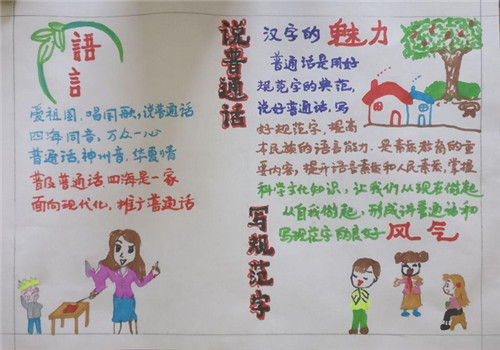 語言
爱祖国,唱国歌,说普通话
四海同音,万众一心
普通话,神州音,华夏情
普及普通话 四海是一家
面向现代化,推广普通话
说普通话
写规范字
汉字的魅力
普通话是用好
规范字的典范,
说好普通话,写
好规范字,提高
本民族的语言能力.是素质教育的重
要内容,提升语言素质和人民素质,掌握
科学文化知识,让我们从现在做起
从自我做起,形成讲普通话和
写规范字的良好风气